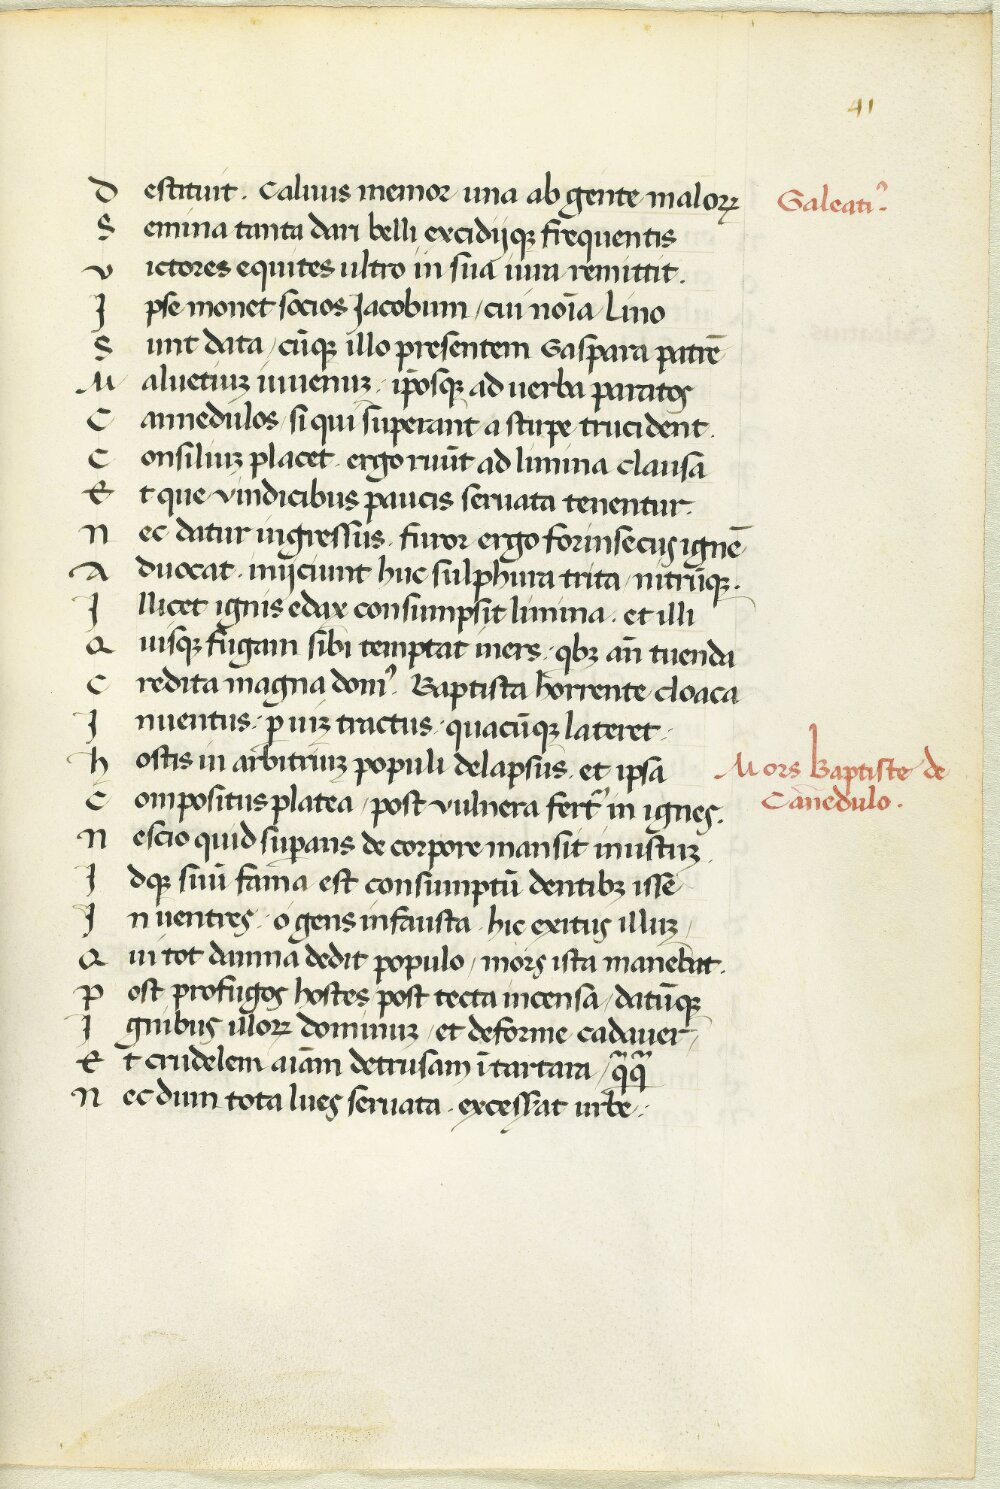 41
D estituit. Caluus memor una ab gente maloꝝ Galeatiꝰ.
S emina tanta dari belli excidijqꝫ frequentis
V ictores equites ultro in sua iura remittit.
I pse monet socios Jacobum / cui noīa Lino
S unt data / cūqꝫ illo presentem Gaspara patrē
M aluetiuꝫ iuuenuꝫ. ip̄osqꝫ ad uerba paratos
C annedulos / si qui superant a stirpe trucident.
C onsiliuꝫ placet. ergo ruūt ad limina clausa
E t que vindicibus paucis seruata tenentur.
N ec datur ingressus. furor ergo forinsecus ignē
A duocat. inijciunt huc sulphura trita / nitrūqꝫ.
I llicet ignis edax consumpsit limina. et illi
Q uisqꝫ fugam sibi temptat iners. qbꝫ an̄ tuenda
C redita magna domꝰ. Baptista horrente cloaca
I nuentus. ꝑ uiꝫ tractus. quacūqꝫ lateret.
H ostis in arbitriuꝫ populi delapsus. et ipsa Mors Baptiste de
C ompositus platea / post vulnera fert᷑ in ignes. Can̄edulo.
N escio quid suꝑans de corpore mansit inustuꝫ.
I dqꝫ suū fama est consumptū dentibꝫ isse
I n uentres. o gens infausta. hic exitus illuꝫ /
Q ui tot damna dedit populo / mors ista manebat.
P ost profugos hostes post tecta incensa / datūqꝫ
I gnibus illoꝝ dominuꝫ / et deforme cadauer /
E t crudelem aīam detrusam ī tartara / qᷓqᷓ
N ec dum tota lues seruata. excesserat urbe.